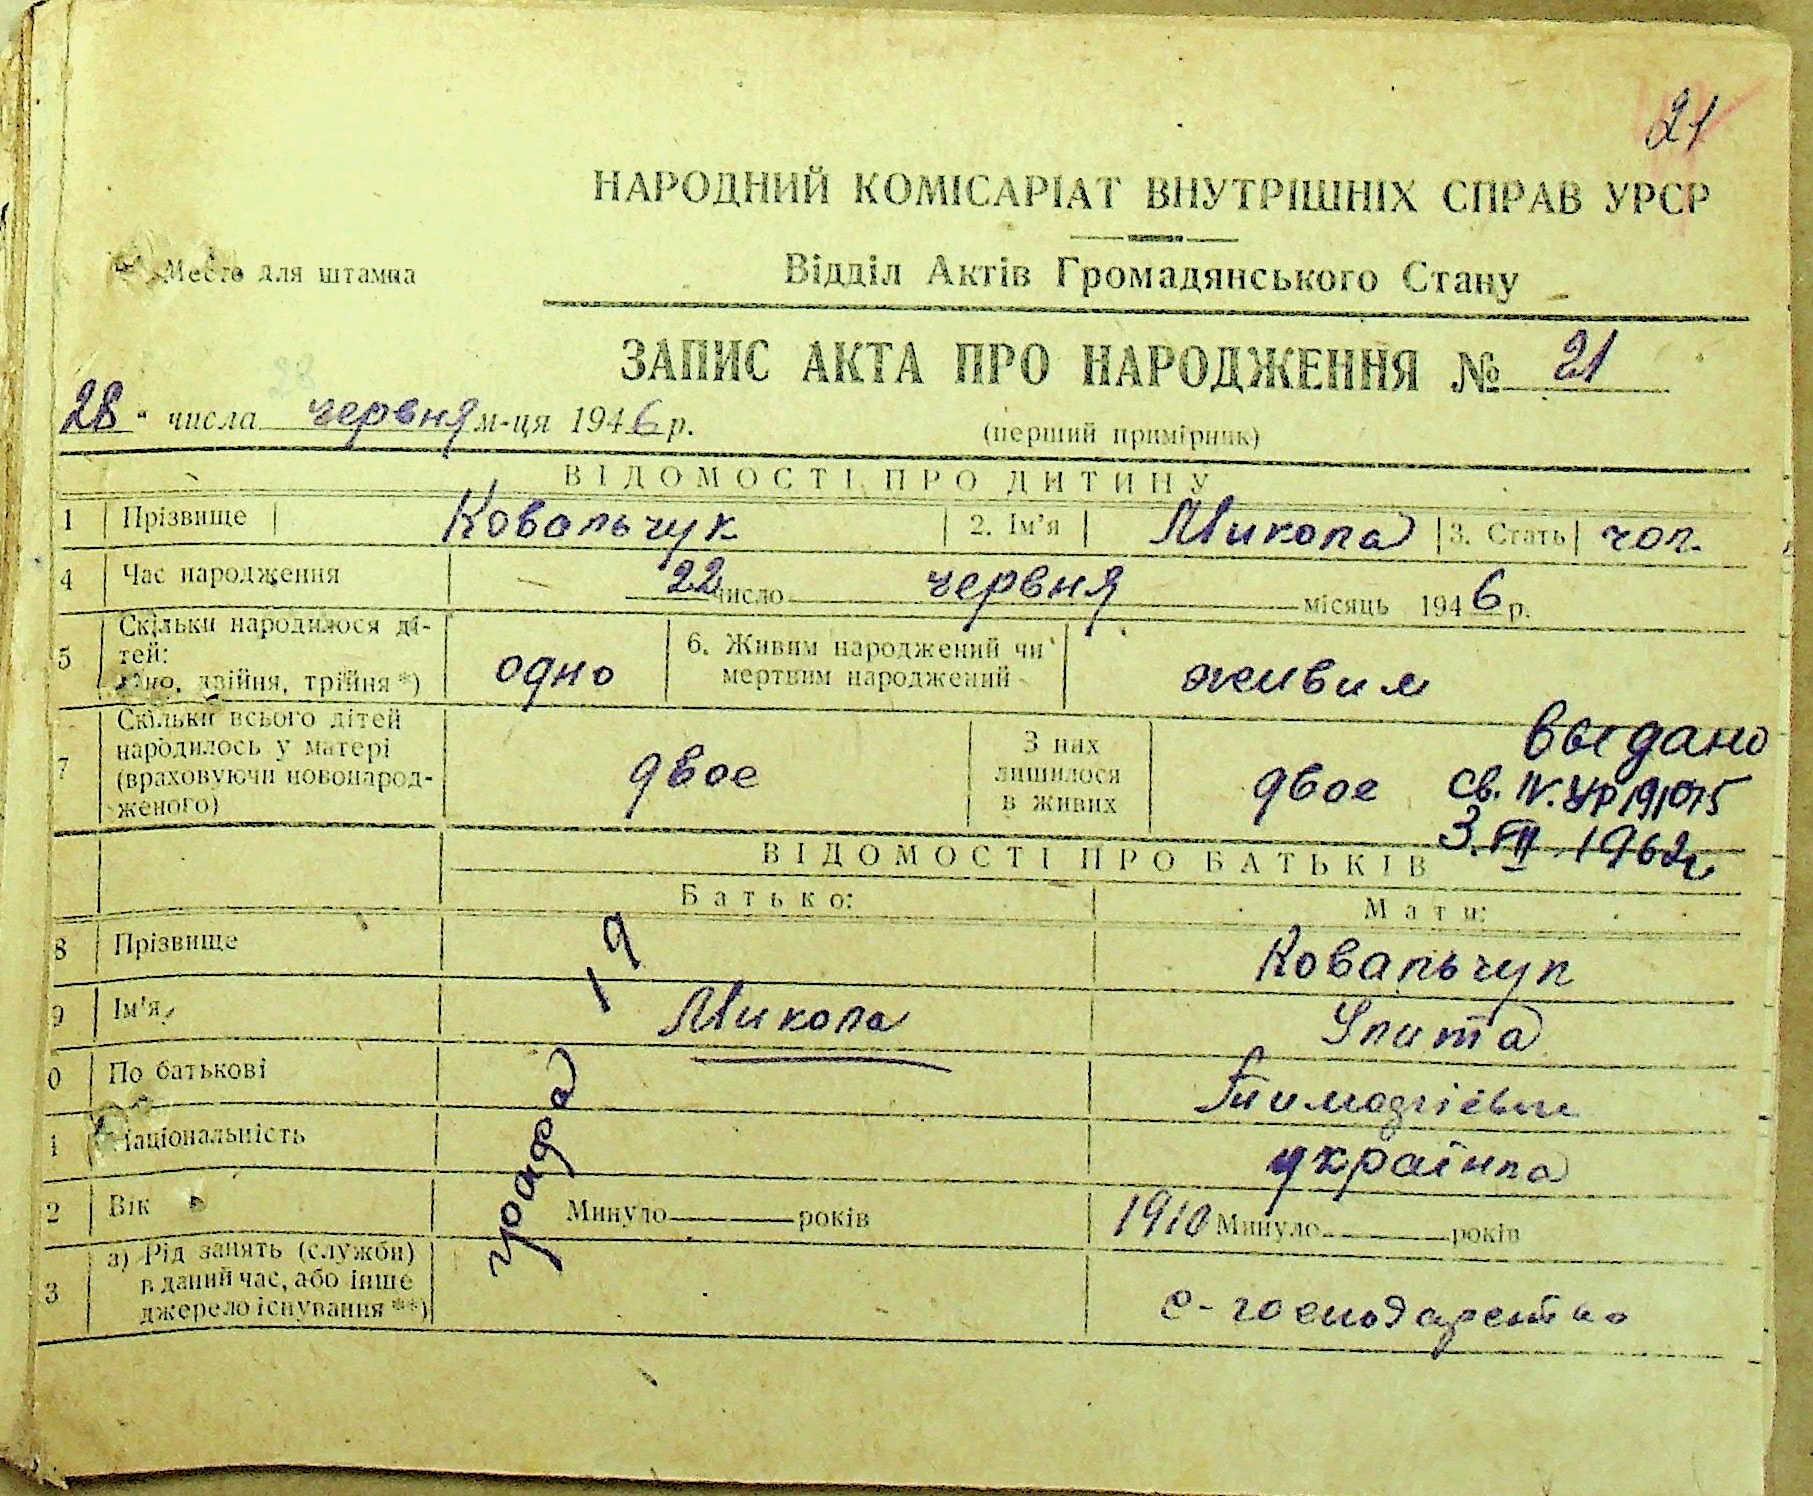 21
НАРОДНИЙ КОМІСАРІАТ ВНУТРІШНІХ СПРАВ УРСР
Место для штампа
Відділ Актів Громадянського Стану
ЗАПИС АКТА ПРО НАРОДЖЕННЯ № 21
28 числа червня м-ця 1946 р.
(перший примірник)
ВІДОМОСТІ ПРО ДИТИНУ
1 Прізвище Ковальчук 2. Ім'я Микола 3. Стать чол.
4 Час народження 22 число червня місяць 1946 р.
5 Скільки народилося ді-
тей:
одно, двійня, трійня*)
одно
6. Живим народжений чи
мертвим народжений
живим
7 Скільки всього дітей
народилось у матері
(враховуючи новонарод-
женого)
двое
З них
лишилося
в живих
двое
Выдано
св. IV.УР 191075
3.VII 1962г
ВІДОМОСТІ ПРО БАТЬКІВ
Батько: Мати:
8 Прізвище Ковальчук
9 Ім'я Микола Улита
0 По батькові
1 Національність українка
2 Вік Минуло років 1910 Минуло років
3 а) Рід занять (служби)
в даний час, або інше
джерело існування**)
с-господарство
графа 19